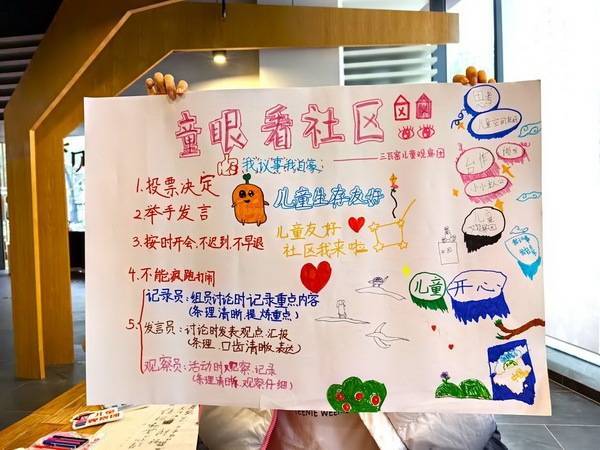 童眼看社区
我议事我自豪
三瓦窑儿童观察团
1.投票决定
儿童生存友好
2.举手发言
儿童友好
社区我来啦
3.按时开会,不迟到,不早退
4.不能疯跑打闹
5.
记录员:组员讨论时记录重点,内容
(条理清晰,提炼重点)
发言员:讨论时发表观点,汇报
(条理,口齿清晰,表达)
观察员:活动时观察,记录
(条理清晰,观察仔细)
儿童空间友好
合作
小小
儿童
儿童
开心